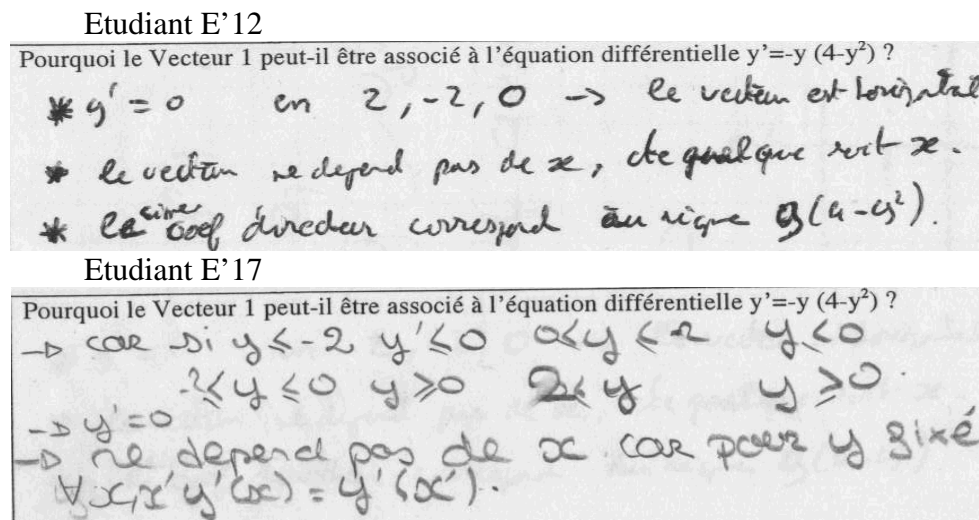 Etudiant E'12
Pourquoi le Vecteur 1 peut-il être associé à l'équation différentielle y'=-y (4-y²) ?
* y' = 0 en 2, -2, 0 → le vecteur est horizontal
* le vecteur ne depend pas de x, cte quelque soit x.
* le signe coef directeur correspond au signe y(4-y²).
Etudiant E'17
Pourquoi le Vecteur 1 peut-il être associé à l'équation différentielle y'=-y (4-y²) ?
→ car si y ≤ -2 y' ≤ 0 0 ≤ y ≤ 2 y ≤ 0
-2 ≤ y ≤ 0 y ≥ 0 2 ≤ y y ≥ 0.
→ y = 0
→ ne depend pas de x car pour y fixé
∀ x, x' y'(x) = y'(x').